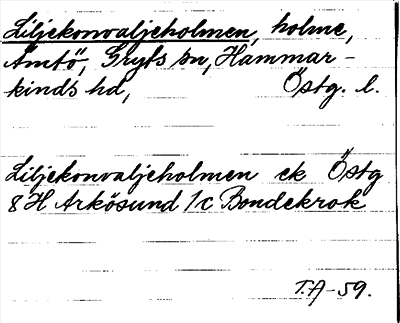 Liljekonvaljeholmen, holme,
Ämtö, Gryts sn, Hammar-
kinds hd, Östg. l.
Liljekonvaljeholmen ek Östg
8H Arkösund 1c Bondekrok
T.A-59.